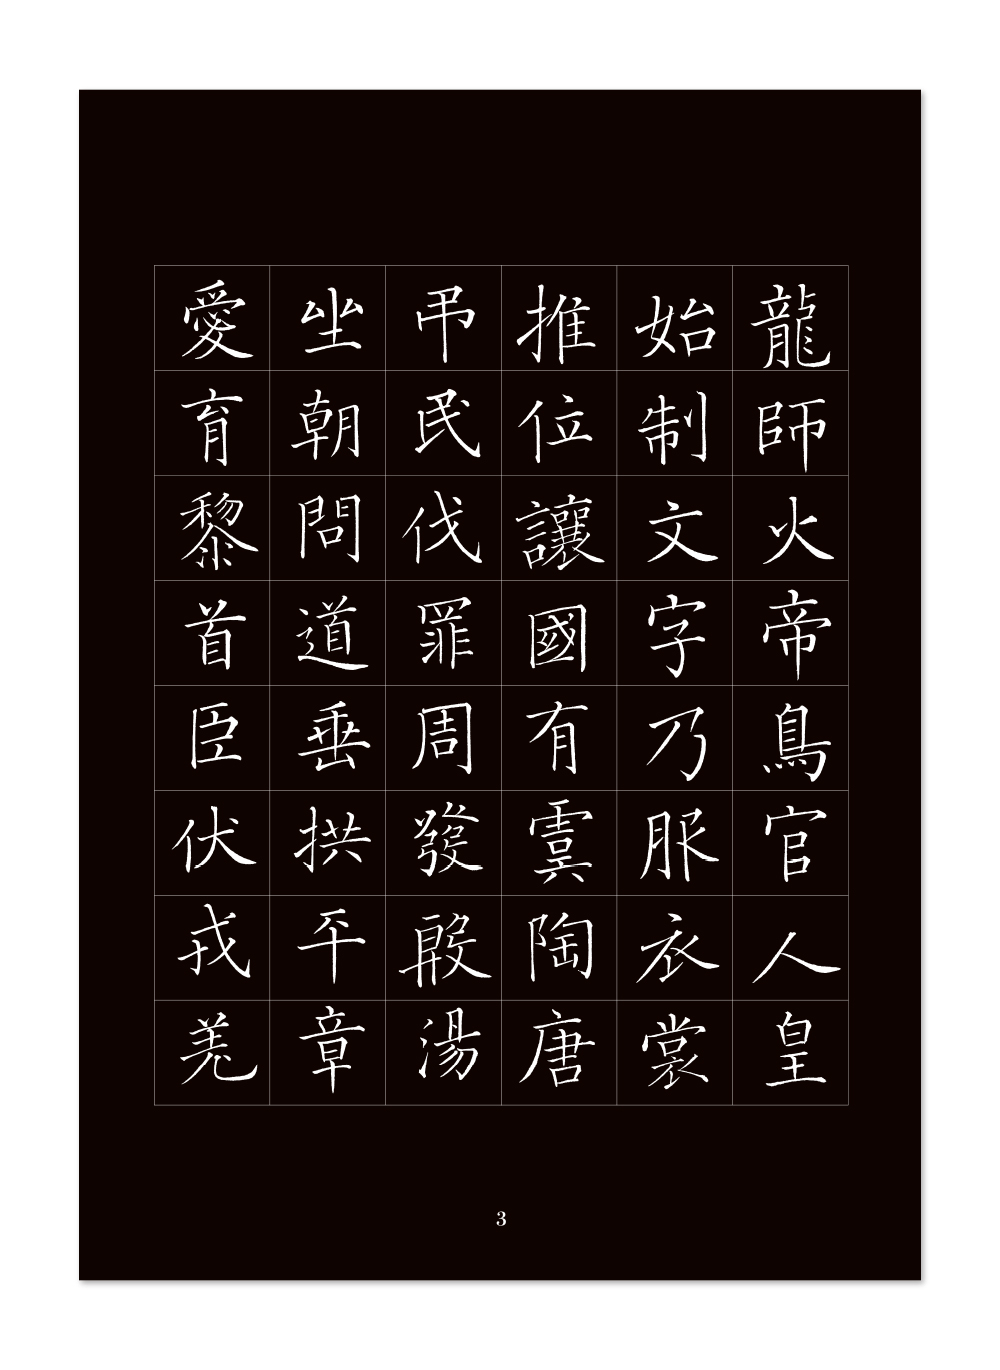 龍師火帝鳥官人皇
始制文字乃服衣裳
推位讓國有虞陶唐
吊民伐罪周發殷湯
坐朝問道垂拱平章
愛育黎首臣伏戎羌
3